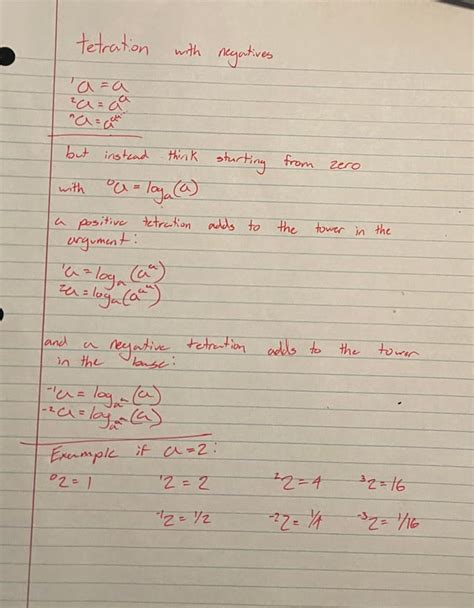 tetration with negatives
¹a = a
²a = a^a
ⁿa = a^a^a^⋰
but instead think starting from zero
with ⁰a = logₐ(a)
a positive tetration adds to the tower in the
argument:
¹a = logₐ(a^a)
²a = logₐ(a^a^a)
and a negative tetration adds to the tower
in the base:
⁻¹a = log_a^a(a)
⁻²a = log_a^a^a(a)
Example if a=2:
⁰2 = 1 ¹2 = 2 ²2 = 4 ³2 = 16
⁻¹2 = 1/2 ⁻²2 = 1/4 ⁻³2 = 1/16